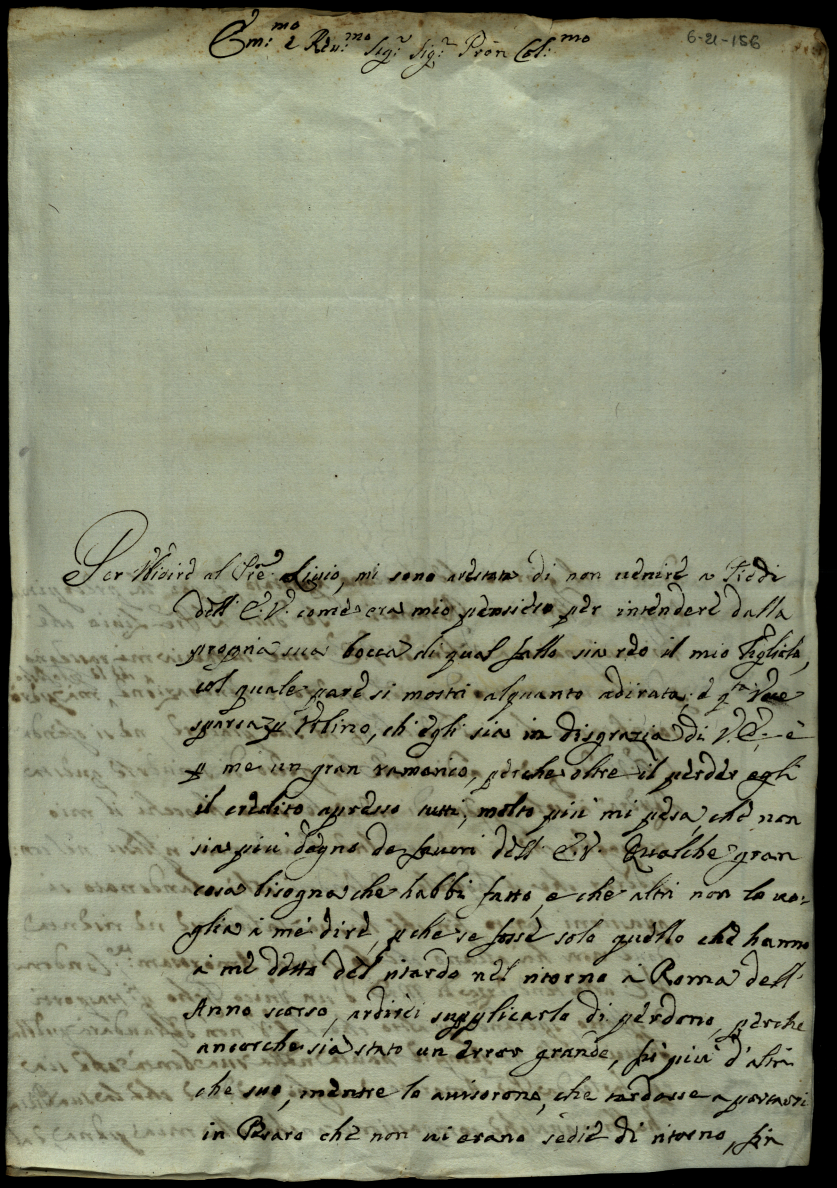 Em:mo e Reu:mo Sig:r Sig:r Pron Col:mo
6-21-156
Per Vbidire al Pre Liuio, mi sono arestata di non uenire a Piedi
dell' E.V. come era mio pensiero per intendere dalla
propria sua bocca di qual fallo sia reo il mio Figliolo,
col quale pare si mostri alquanto adirata, è
sparsa p Vrbino, ch' egli sia in disgrazia di V.E. è
p me un gran ramarico, perche oltre il perder egli
il credito apresso tutti, molto più mi pesa, che non
sia più degno de fauori dell' E.V. Qualche gran
cosa bisogna che habbi fatto, e che altri non lo uo-
glia à me dire, pche se fosse solo quello che hanno
à me detto del ritardo nel ritorno à Roma dell'
Anno scorso, ardirei supplicarla di perdono, perche
ancorche sia stato un error grande, fù più d'altri
che suo, mentre lo auisorono, che tardasse a portarsi
in Pesaro che non ui erano sedie di ritorno, fin